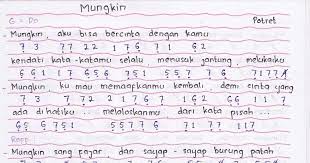 Mungkin
G = Do Potret
- Mungkin, aku bisa bercinta dengan kamu
7 3 7 7 2 2 1 7 6 7 1 6 2
kendati kata-katamu selalu menusuk jantung, melukaiku
6 6 1 1 7 6 5 6 7 5 1 5 5 7 7 6 7 1 7 7 1
- Mungkin, ku mau memaafkanmu kembali, demi cinta yang
7 3 7 7 2 2 1 7 6 7 1 6 2 6 6 1 1 7
ada dihatiku ... meloloskanmu dari kata pisah ....
6 5 6 7 5 1 5 5 5 7 7 6 7 1 7 7 1 1 7
Reff.
- Mungkin sang fajar dan sayap - sayap burung patah